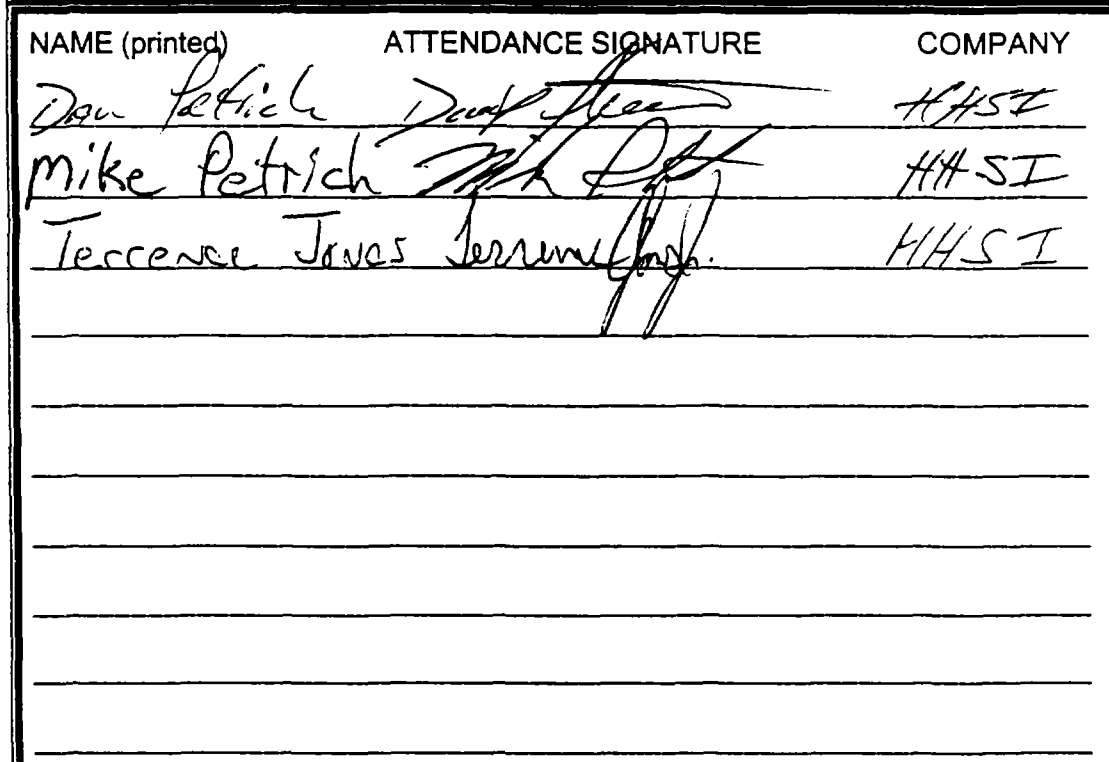 NAME (printed) ATTENDANCE SIGNATURE COMPANY
Dan Petrich HHSI
Mike Petrich Mik HHSI
Terrence Jones Terrence HHSI